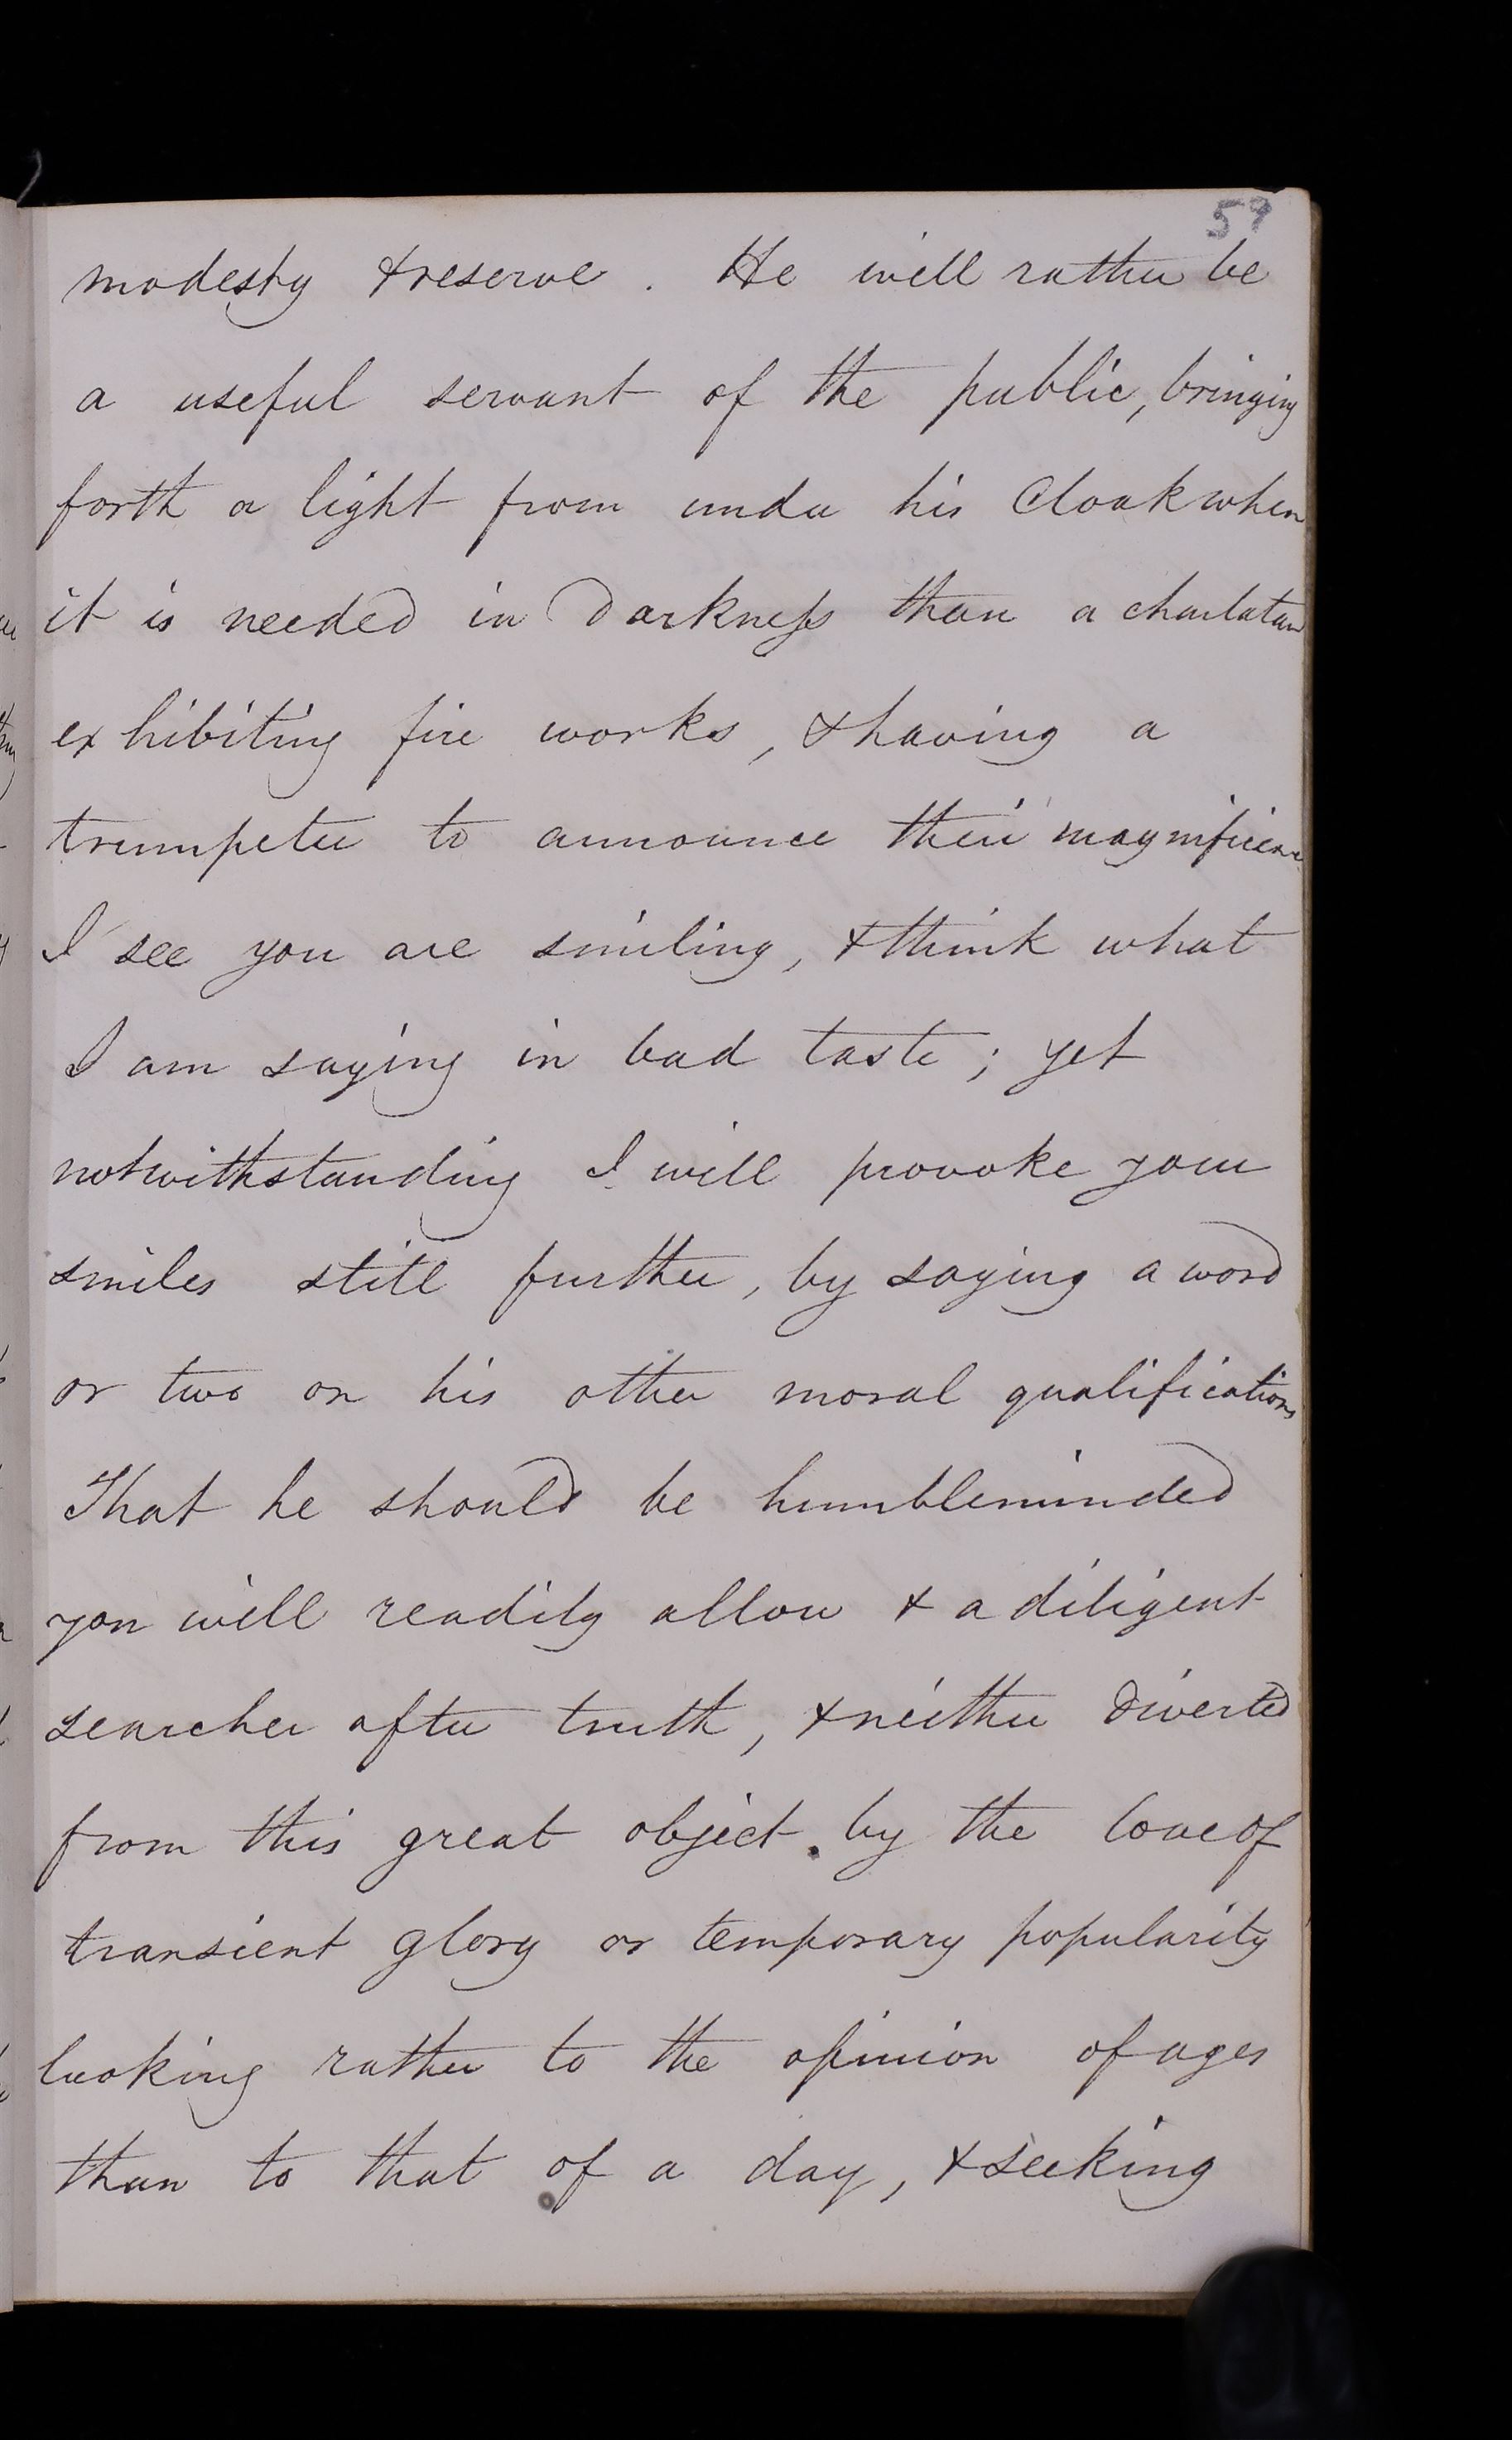 59
modesty & reserve. He will rather be
a useful servant of the public, bringing
forth a light from under his Cloak when
it is needed in darkness than a charlatan
exhibiting fire works, & having a
trumpeter to announce their magnificence
I see you are smiling, & think what
I am saying in bad taste; yet
notwithstanding I will provoke your
smiles still further, by saying a word
or two on his other moral qualifications
That he should be humbleminded
you will readily allow & a diligent
searcher after truth, & neither diverted
from this great object by the love of
transient glory or temporary popularity
looking rather to the opinion of ages
than to that of a day, & seeking